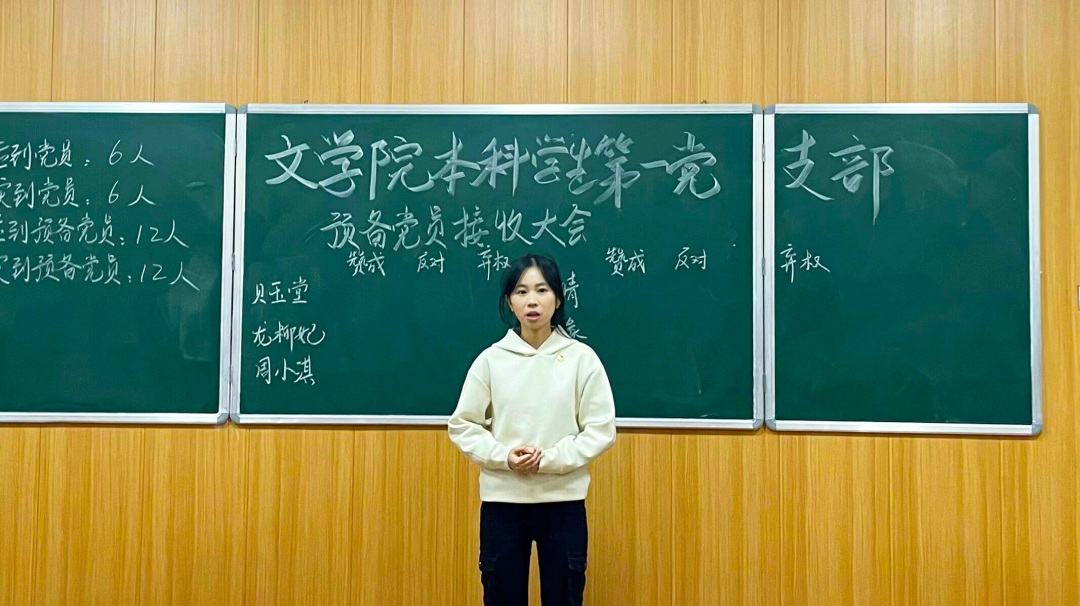 到党员：6人
实到党员：6人
到预备党员：12人
实到预备党员：12人
文学院本科学生第一党支部
预备党员接收大会
赞成 反对 弃权 赞成 反对 弃权
贝玉堂
晴
龙柳妃
周小淇